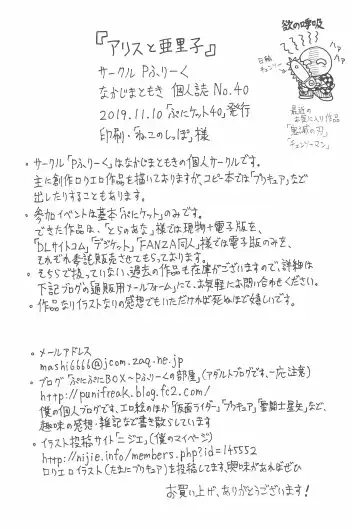 『アリスと亜里子』
サークル Pふりーく
なかじまともき 個人誌 No.40
2019.11.10「ぷにケット40」発行
印刷・「ねこのしっぽ」様
欲の呼吸
ハァ
ハァ
日輪
チェンソー
最近の
お気に入り作品
「鬼滅の刃」
「チェンソーマン」
・サークル「Pふりーく」はなかじまともきの個人サークルです。
主に創作ロリエロ作品を描いておりますが、コピー本では「プリキュア」など
出したりすることもあります。
・参加イベントは基本「ぷにケット」のみです。
できた作品は、「とらのあな」様では現物+電子版を、
「DLサイトコム」「デジケット」「FANZA同人」様では電子版のみを、
それぞれ委託販売させてもらっております。
・そちらで扱っていない、過去の作品も在庫がございますので、詳細は
下記ブログの「通販用メールフォーム」にて、お気軽にお問い合わせください。
・作品なりイラストなりの感想でもいただければ死ぬほど嬉しいです。
・メールアドレス
mashi6666@jcom.zaq.ne.jp
・ブログ「ぷにぷにBOX~Pふりーくの部屋」(アダルトブログです、一応注意)
http://punifreak.blog.fc2.com/
僕の個人ブログです、エロ絵のほか「仮面ライダー」「プリキュア」「聖闘士星矢」など、
趣味の感想・雑記など書き散らしています
・イラスト投稿サイト「ニジエ」(僕のマイページ)
http://nijie.info/members.php?id=145552
ロリエロイラスト(たまにプリキュア)を投稿してます、興味があればぜひ
お買い上げ、ありがとうございます!